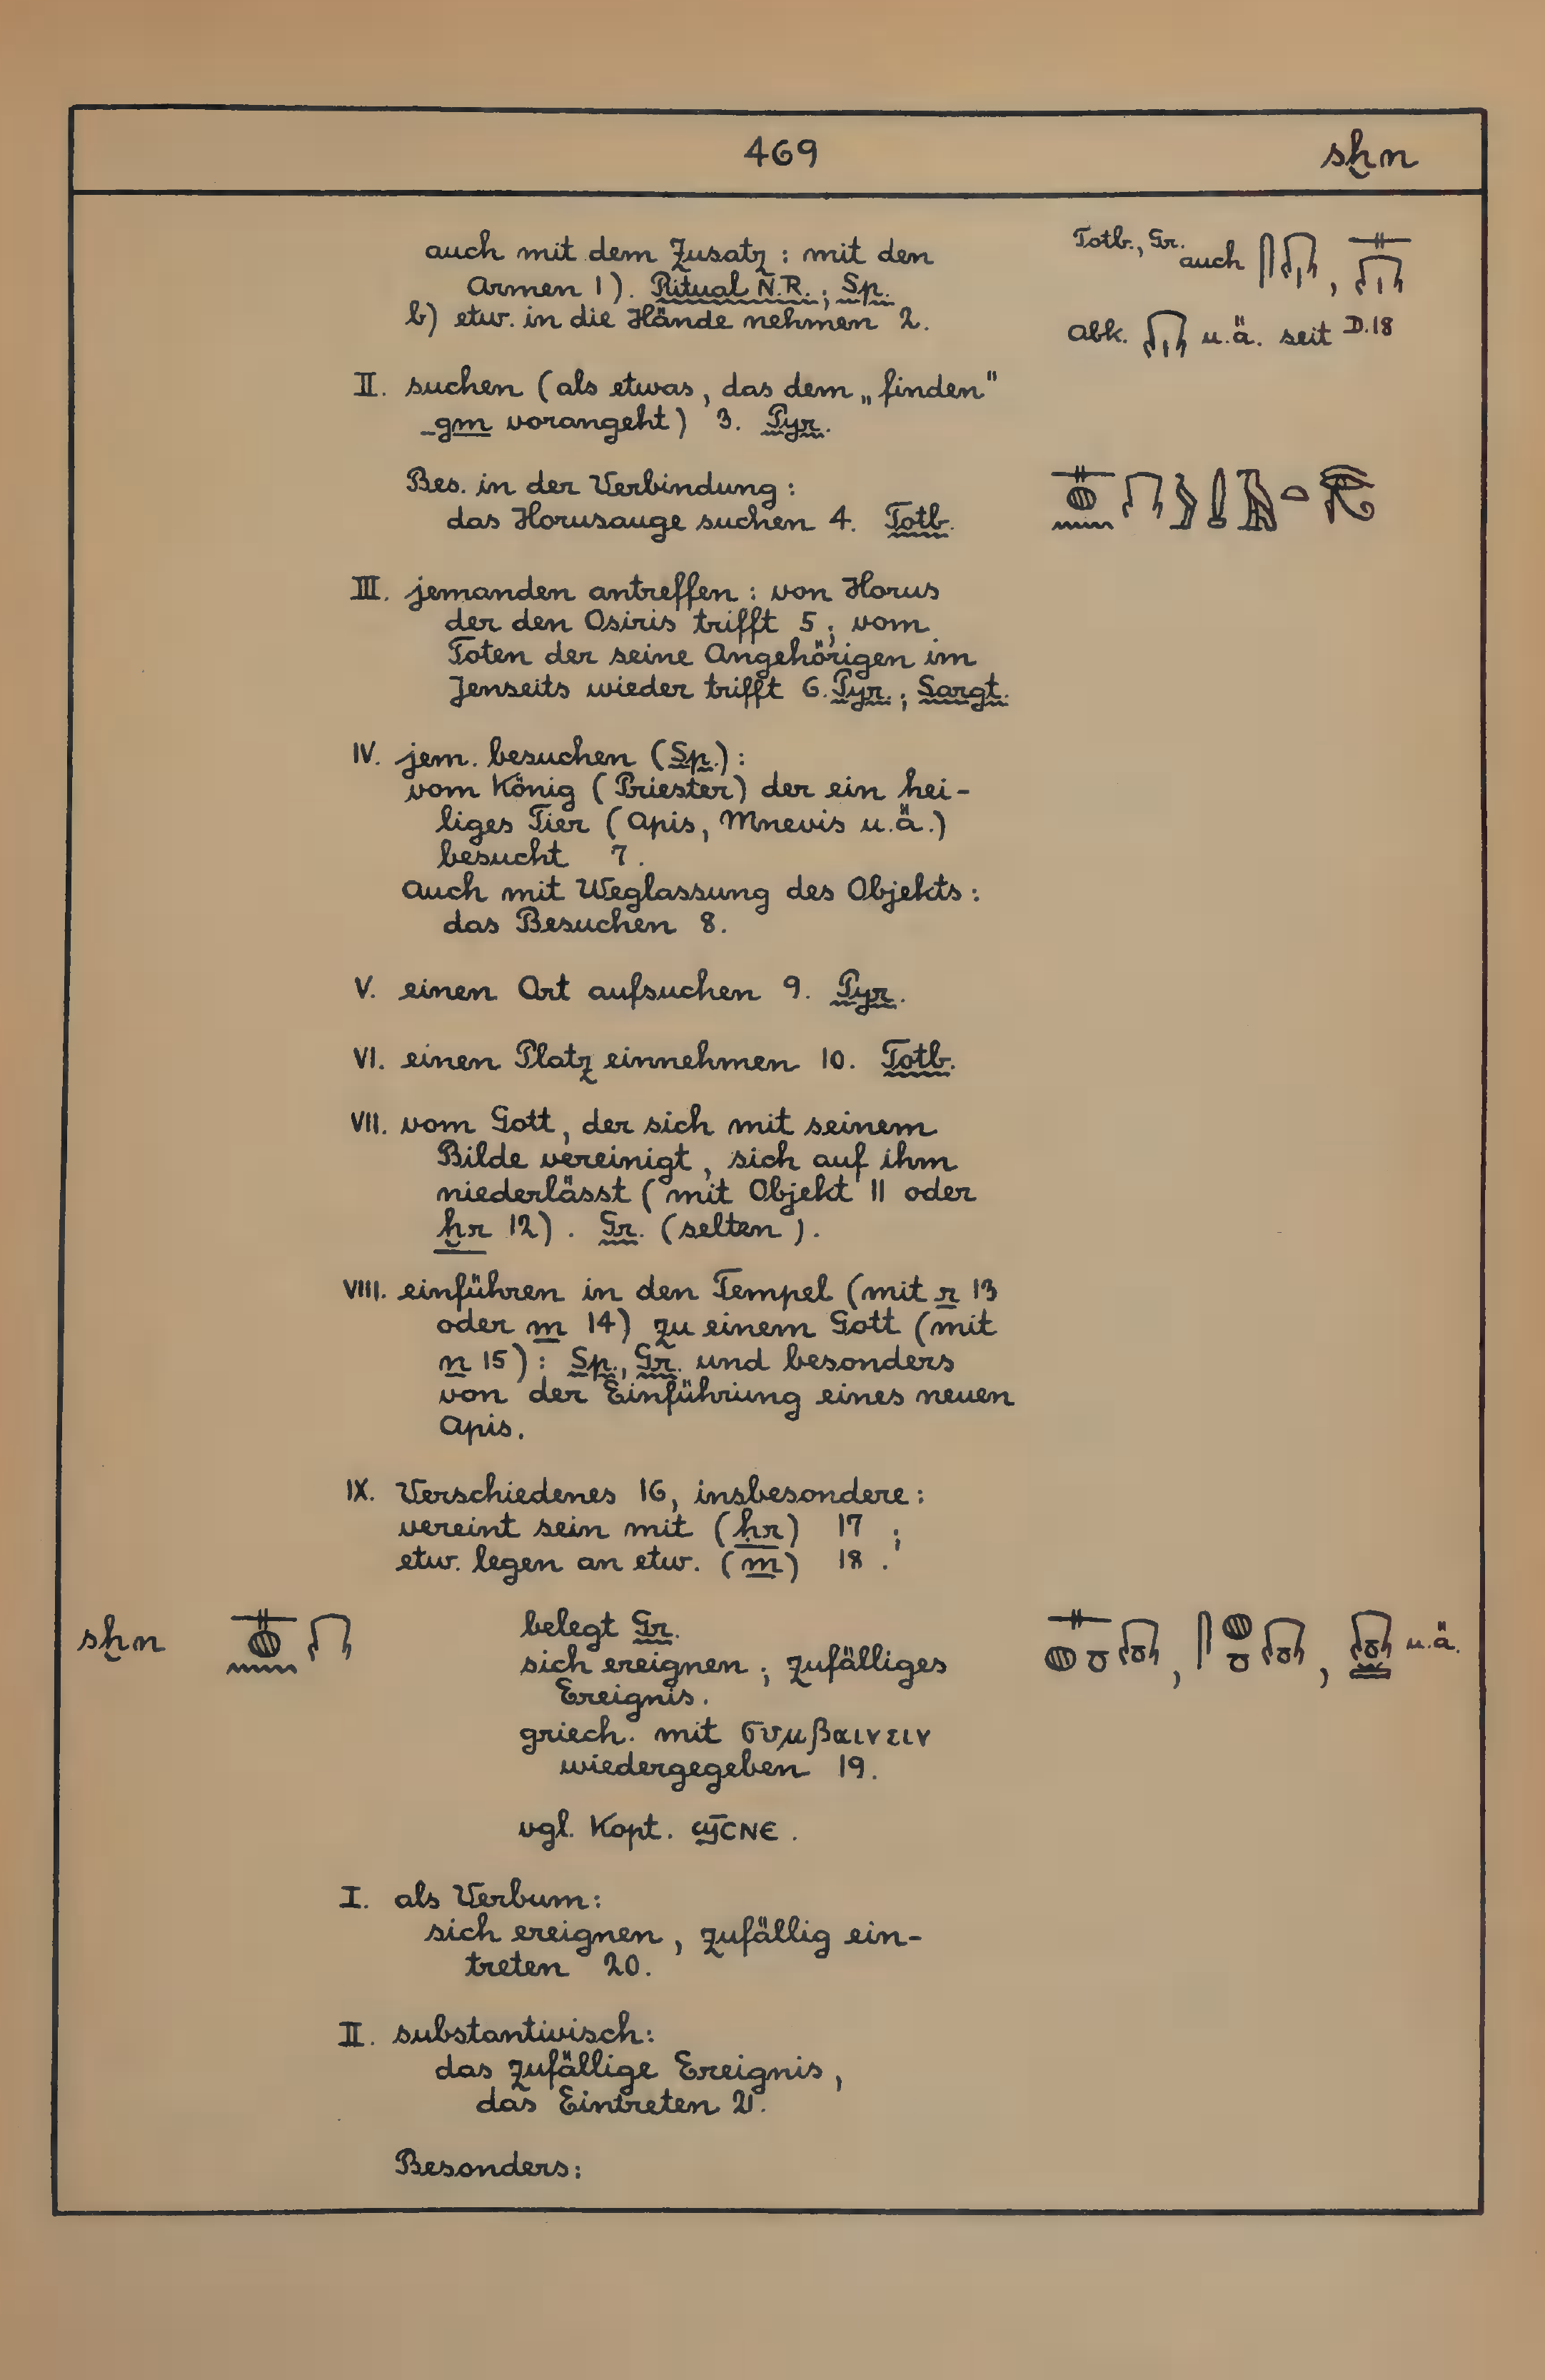 469 sḫn
auch mit dem Zusatz : mit den
Armen 1). Ritual N.R. ; Sp.
b) etw. in die Hände nehmen 2.
Totb., Gr. auch
Abk. u.ä. seit D.18
II. suchen (als etwas, das dem „finden"
gm vorangeht) 3. Pyr.
Bes. in der Verbindung :
das Horusauge suchen 4. Totb.
III. jemanden antreffen : von Horus
der den Osiris trifft 5 ; vom
Toten der seine Angehörigen im
Jenseits wieder trifft 6. Pyr. ; Sargt.
IV. jem. besuchen (Sp.) :
vom König (Priester) der ein hei-
liges Tier (Apis, Mnevis u.ä.)
besucht 7.
Auch mit Weglassung des Objekts :
das Besuchen 8.
V. einen Ort aufsuchen 9. Pyr.
VI. einen Platz einnehmen 10. Totb.
VII. vom Gott, der sich mit seinem
Bilde vereinigt, sich auf ihm
niederlässt (mit Objekt 11 oder
ḥr 12). Gr. (selten).
VIII. einführen in den Tempel (mit r 13
oder m 14) zu einem Gott (mit
n 15) : Sp., Gr. und besonders
von der Einführung eines neuen
Apis.
IX. Verschiedenes 16, insbesondere :
vereint sein mit (ḥr) 17 ;
etw. legen an etw. (m) 18.
sḫn
belegt Gr.
sich ereignen ; zufälliges
Ereignis.
u.ä.
griech. mit συμβαινειν
wiedergegeben 19.
vgl. Kopt. ϣ̄CNE .
I. als Verbum :
sich ereignen, zufällig ein-
treten 20.
II. substantivisch :
das zufällige Ereignis,
das Eintreten 21.
Besonders :